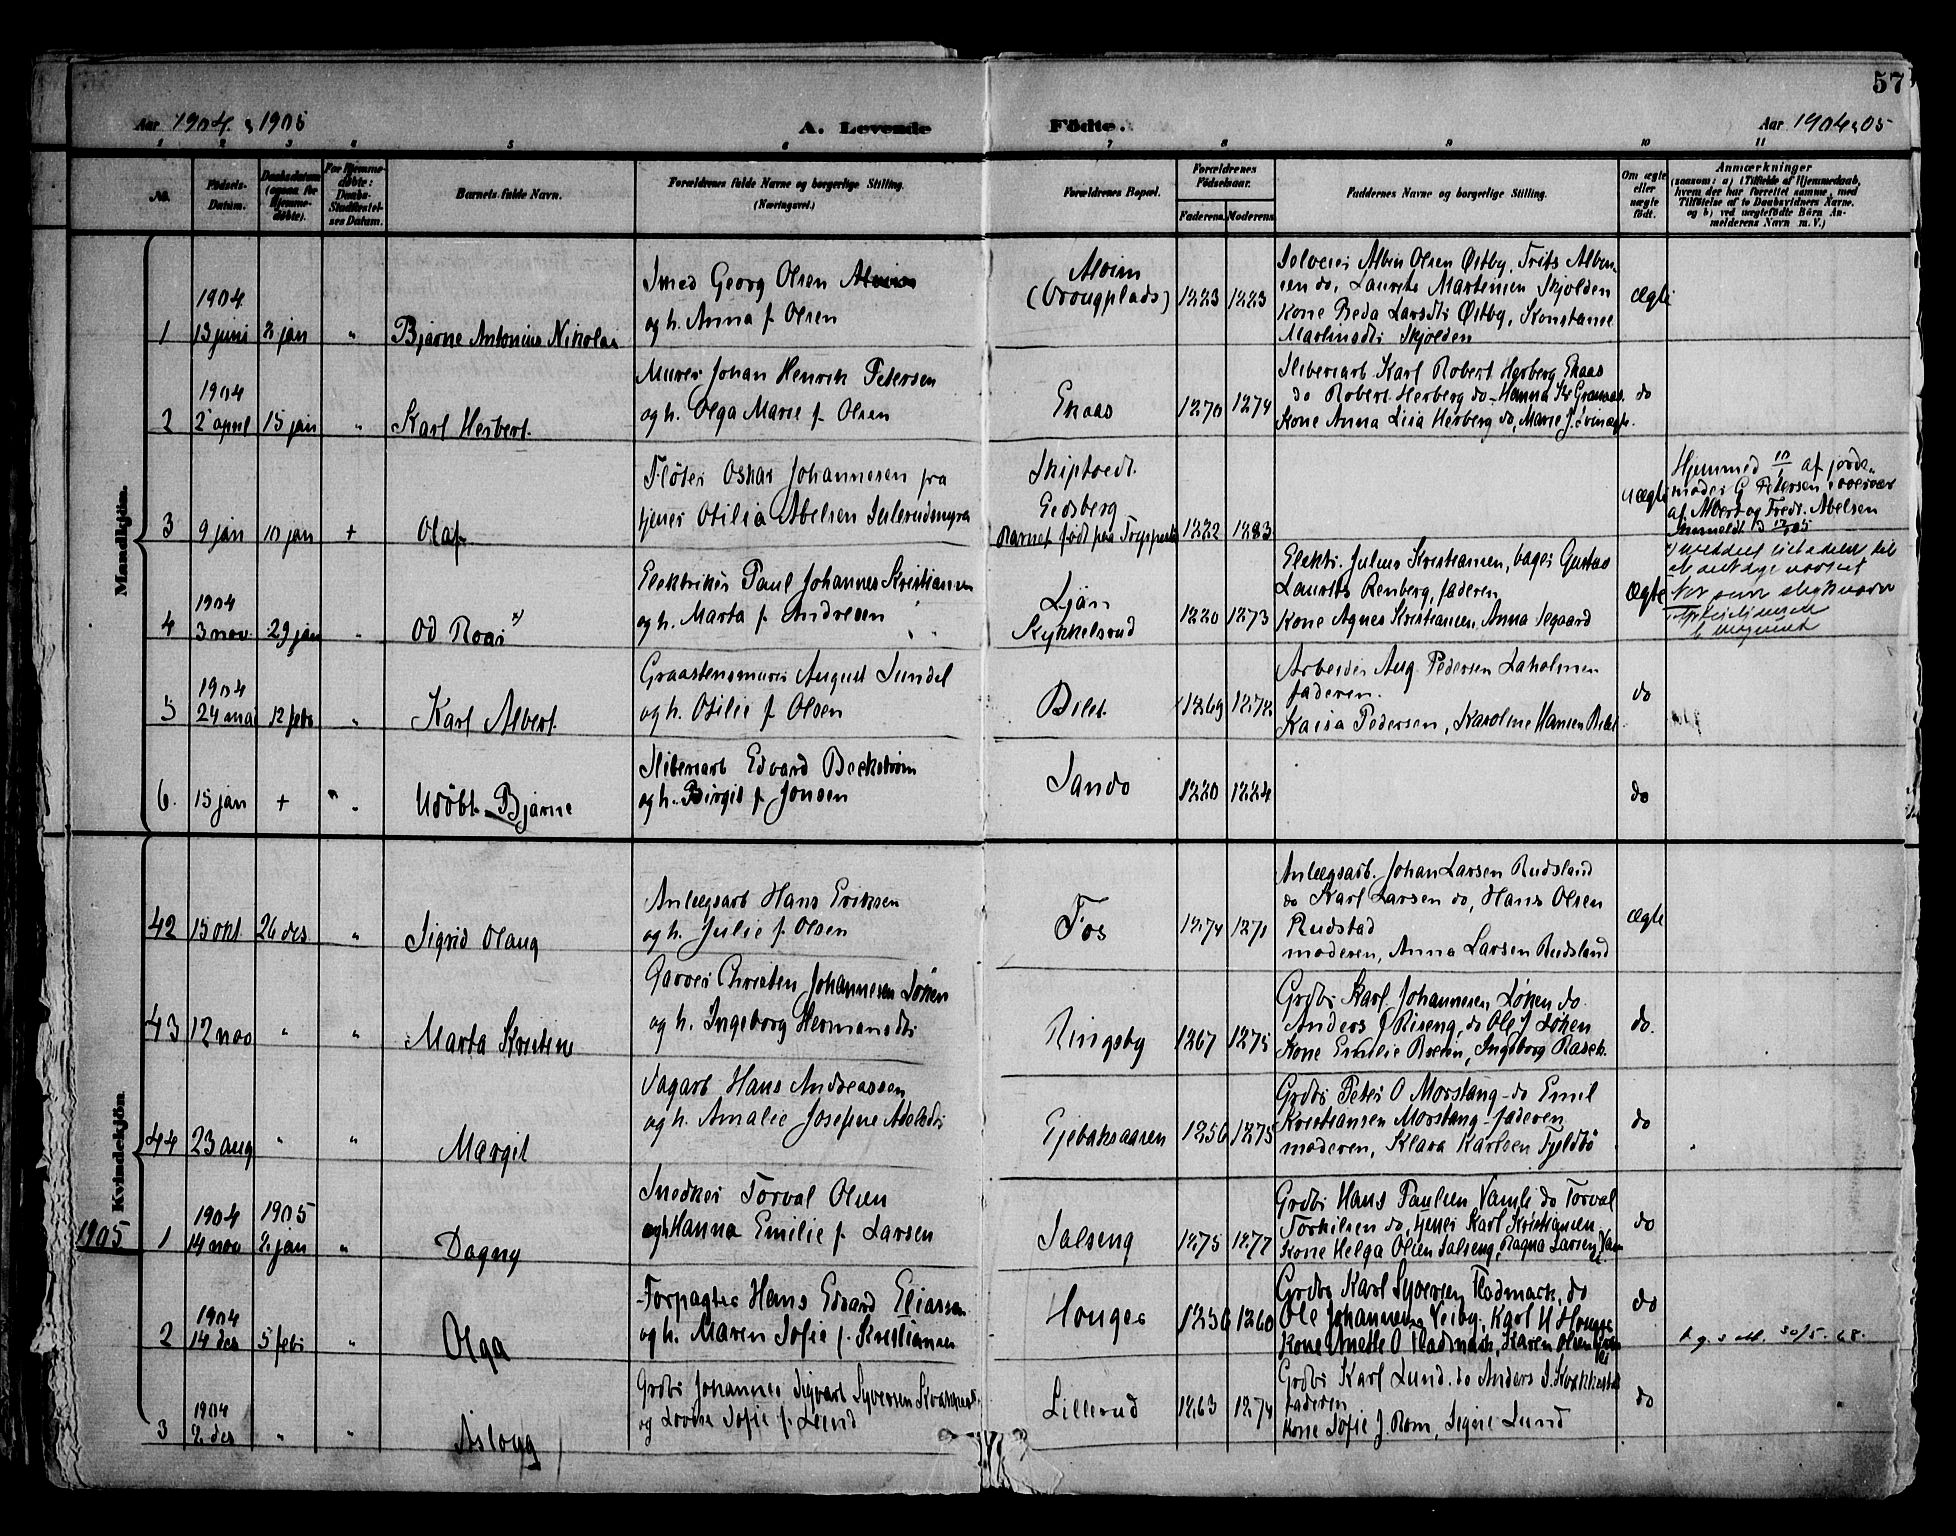 57
Aar 1904 & 1905 A. Levende Fødte. Aar 1904 & 05
1 2 3 4 5 6 7 8 9 10 11
No.
Fødsels-Datum.
Daabsdatum (ogsaa for Hjemme-døbte).
For Hjemme-døbte: Daabs-Stadfæstel-ses Datum.
Barnets fulde Navn.
Forældrenes fulde Navne og borgerlige Stilling. (Næringsvei.)
Forældrenes Bopæl.
Forældrenes Fødselsaar.
Faderens. Moderens.
Faddernes Navne og borgerlige Stilling.
Om ægte eller uægte født.
Anmærkninger
(saasom: a) i Tilfælde af Hjemmedaab,
hvem der har forrettet samme, med
Tilføielse af to Daabsvidners Navne,
og b) ved uægtefødte Børn An-
melderens Navn m. V.)
Mandkjøn.
1 1904 13 juni 2 jan " Bjarne Antonius Nikolai
Smed Georg Olsen Alvim
og h. Anna f. Olsen
Alvim
(Vrougplads)
1883 1883
Selveier Albin Olsen Østby, Frits Albin-
sen do, Laurits Martinsen Skjolden
Kone Beda Larsdtr Østby, Konstanse
Martinsdtr Skjolden
ægte
2 1904 2 april 15 jan " Karl Herbert.
Murer Johan Henrik Petersen
og h. Olga Marie f. Olsen
Enaas
1870 1874
Sliberiarb Karl Robert Herberg Enaas
do Robert Herberg do - Hanna Granaas
Kone Anna Lisa Herberg do, Marie J.
do
3 9 jan 10 jan + Olaf
Fløter Oskar Johannesen fra
tjener Otilia Abelsen
Skiptvedt.
Eidsberg
Barnet født paa
1882 1883
uægte
Hjemmed 10/1 af jorde-
moder G Petersen, overvær
af Albert og Fredr. Abelsen
Anmeldt d
4 1904 3 nov 29 jan " Od Roar x)
Elektriker Paul Johannes Kristiansen
og h. Marta f. Andresen
Ljan
Kykkelsrud
1880 1873
Elektr. Julius Kristiansen, bager Gustav
Laurits Renberg, faderen
Kone Agnes Kristiansen, Anna Segaard
ægte
5 1904 24 mai 12 febr " Karl Albert
Graastensmurer August Sundel
og h. Otilie f Olsen
Bilet.
1869 1872
Arbeider Aug. Pedersen Laholmen
faderen.
Kaisa Pedersen, Karoline Hansen Bilet
do
6. 15 jan + " Udøbt Bjarne
Sliberiarb Edvard Beckstrøm
og h. Birgit f Jonsen
Sando
1880 1884
do
Kvindekjøn.
42 15 okt 26 des " Sigrid Olaug
Anlægsarb Hans Eriksen
og h. Julie f. Olsen
Fos
1874 1871
Anlægsarb. Johan Larsen Rudsland
do Karl Larsen do, Hans Olsen
Rudstad
moderen, Anna Larsen Rudsland
ægte
43 12 nov " " Marta Kristine
Garver Christen Johannesen Løken
og h. Ingeborg Hermansdtr
Ringsby
1867 1875
Grdbr Karl Johannesen Løken do.
Anders J Riseng, do Ole J Løken
Kone Emilie Brenin, Ingeborg Rasch.
do.
44 23 aug " " Margit
Dagarb Hans Andreassen
og h. Amalie Josefine Adelsdtr
Gjebaksaaren
1856 1875
Grdbr Peter O Morstang - do Emil
Kristiansen Morstang - faderen
moderen, Klara Karlsen Fjeldbo
do
1905, 1 1904 14 nov 1905 2 jan " Dagny
Snedker Torval Olsen
og h Hanna Emilie f. Larsen
Salseng
1875 1877
Grdbr Hans Paulsen Vamli do Torval
Torkilsen do, tjener Karl Kristiansen
Kone Helga Olsen Salseng, Ragna Larsen
do
2 1904 14 des 5 febr " Olga
Forpagter Hans Edvard Eliassen
og h. Maren Sofie f. Kristiansen
Houger
1856 1860
Grdbr Karl Syversen Flodmark, do
Ole Johannesen Veiby, Karl H Houger
Kone Anette O Flodmark, Karen Olsen
do
30/5. 68.
3 1904 2 des " " Aslaug
Grdbr Johannes Sigvart Syversen
og Lovise Sofie f. Lund
Lillerud
1863 1874
Grdbr Karl Lund. do Anders S.
faderen
Kone Sofie J. Rom, Signe Lund
do